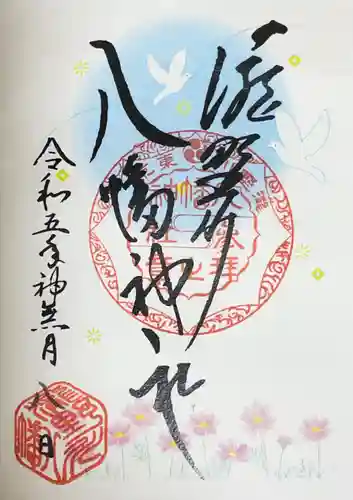 瀧野川
八幡神社
令和五年神無月八日